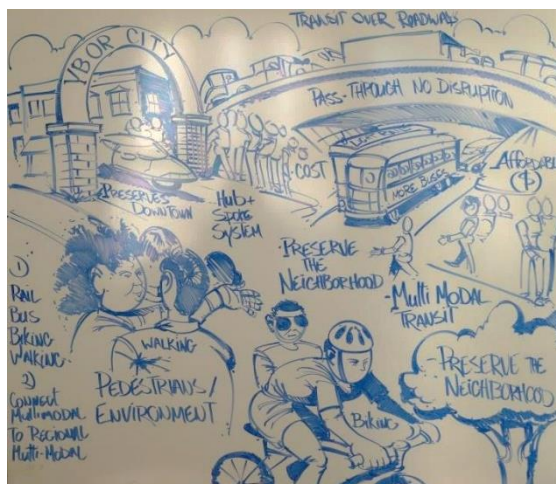 TRANSIT OVER ROADWAYS
YBOR CITY
PASS-THROUGH NO DISRUPTION
COST
MORE BUSES
AFFORDABLE
($)
PRESERVES
DOWNTOWN
Hub+
Spoke
SYSTEM
-PRESERVE
THE
NEIGHBORHOOD
-Multi Modal
TRANSIT
1)
RAIL
BUS
BIKING
WALKING
2)
CONNECT
MultiMODAL
TO REGIONAL
Multi-MODAL
WALKING
PEDESTRIANS/
ENVIRONMENT
BIKING
PRESERVE THE
NEIGHBORHOOD